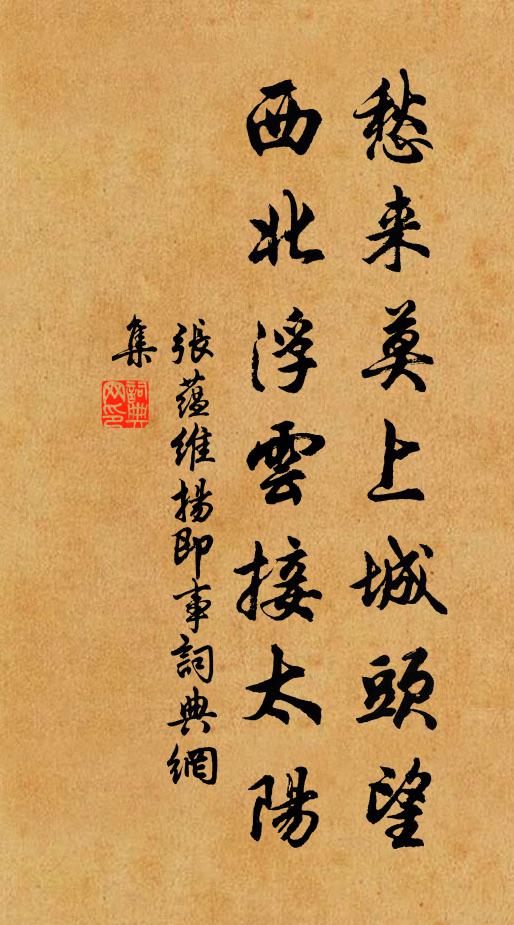 愁来莫上城頭望
西北浮雲接太陽
張蘊維揚即事詞典網
集
詞典
网印